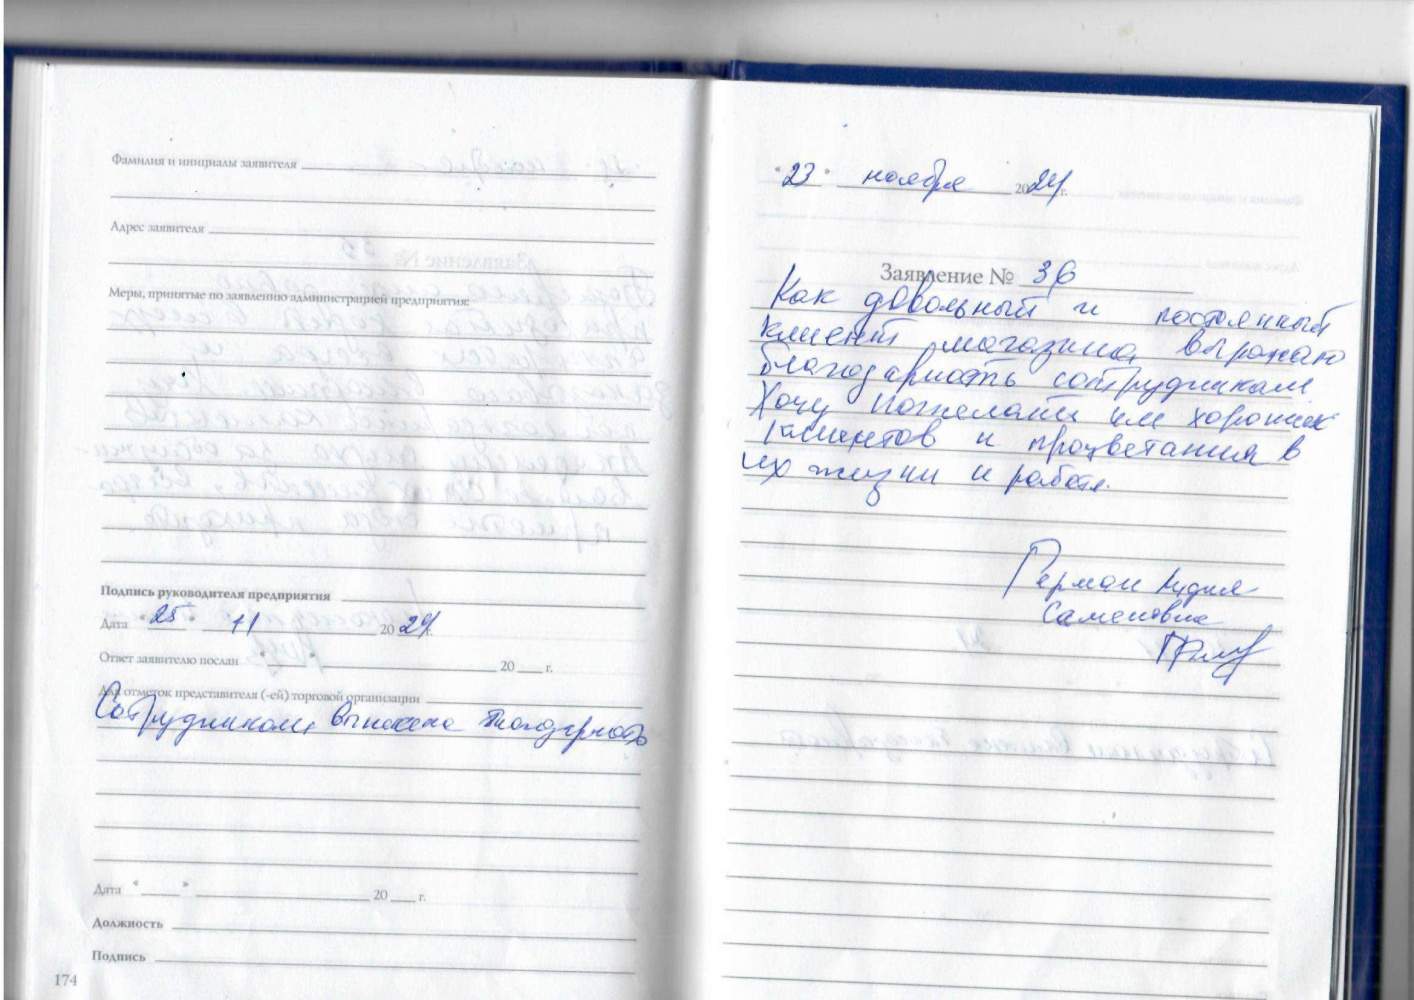 Фамилия и инициалы заявителя
Адрес заявителя
Меры, принятые по заявлению администрацией предприятия:
Подпись руководителя предприятия
Дата "25" 11 2024 г.
Ответ заявителю послан " " 20 г.
Для отметок представителя (-ей) торговой организации
Сотрудникам вынесена благодарность
Дата " " 20 г.
Должность
Подпись
174
"23" ноября 2024 г.
Заявление № 36
Как довольный и постоянный
клиент магазина, выражаю
благодарность сотрудникам.
Хочу пожелать им хороших
клиентов и процветания в
их жизни и работе.
Герман
Саменовна